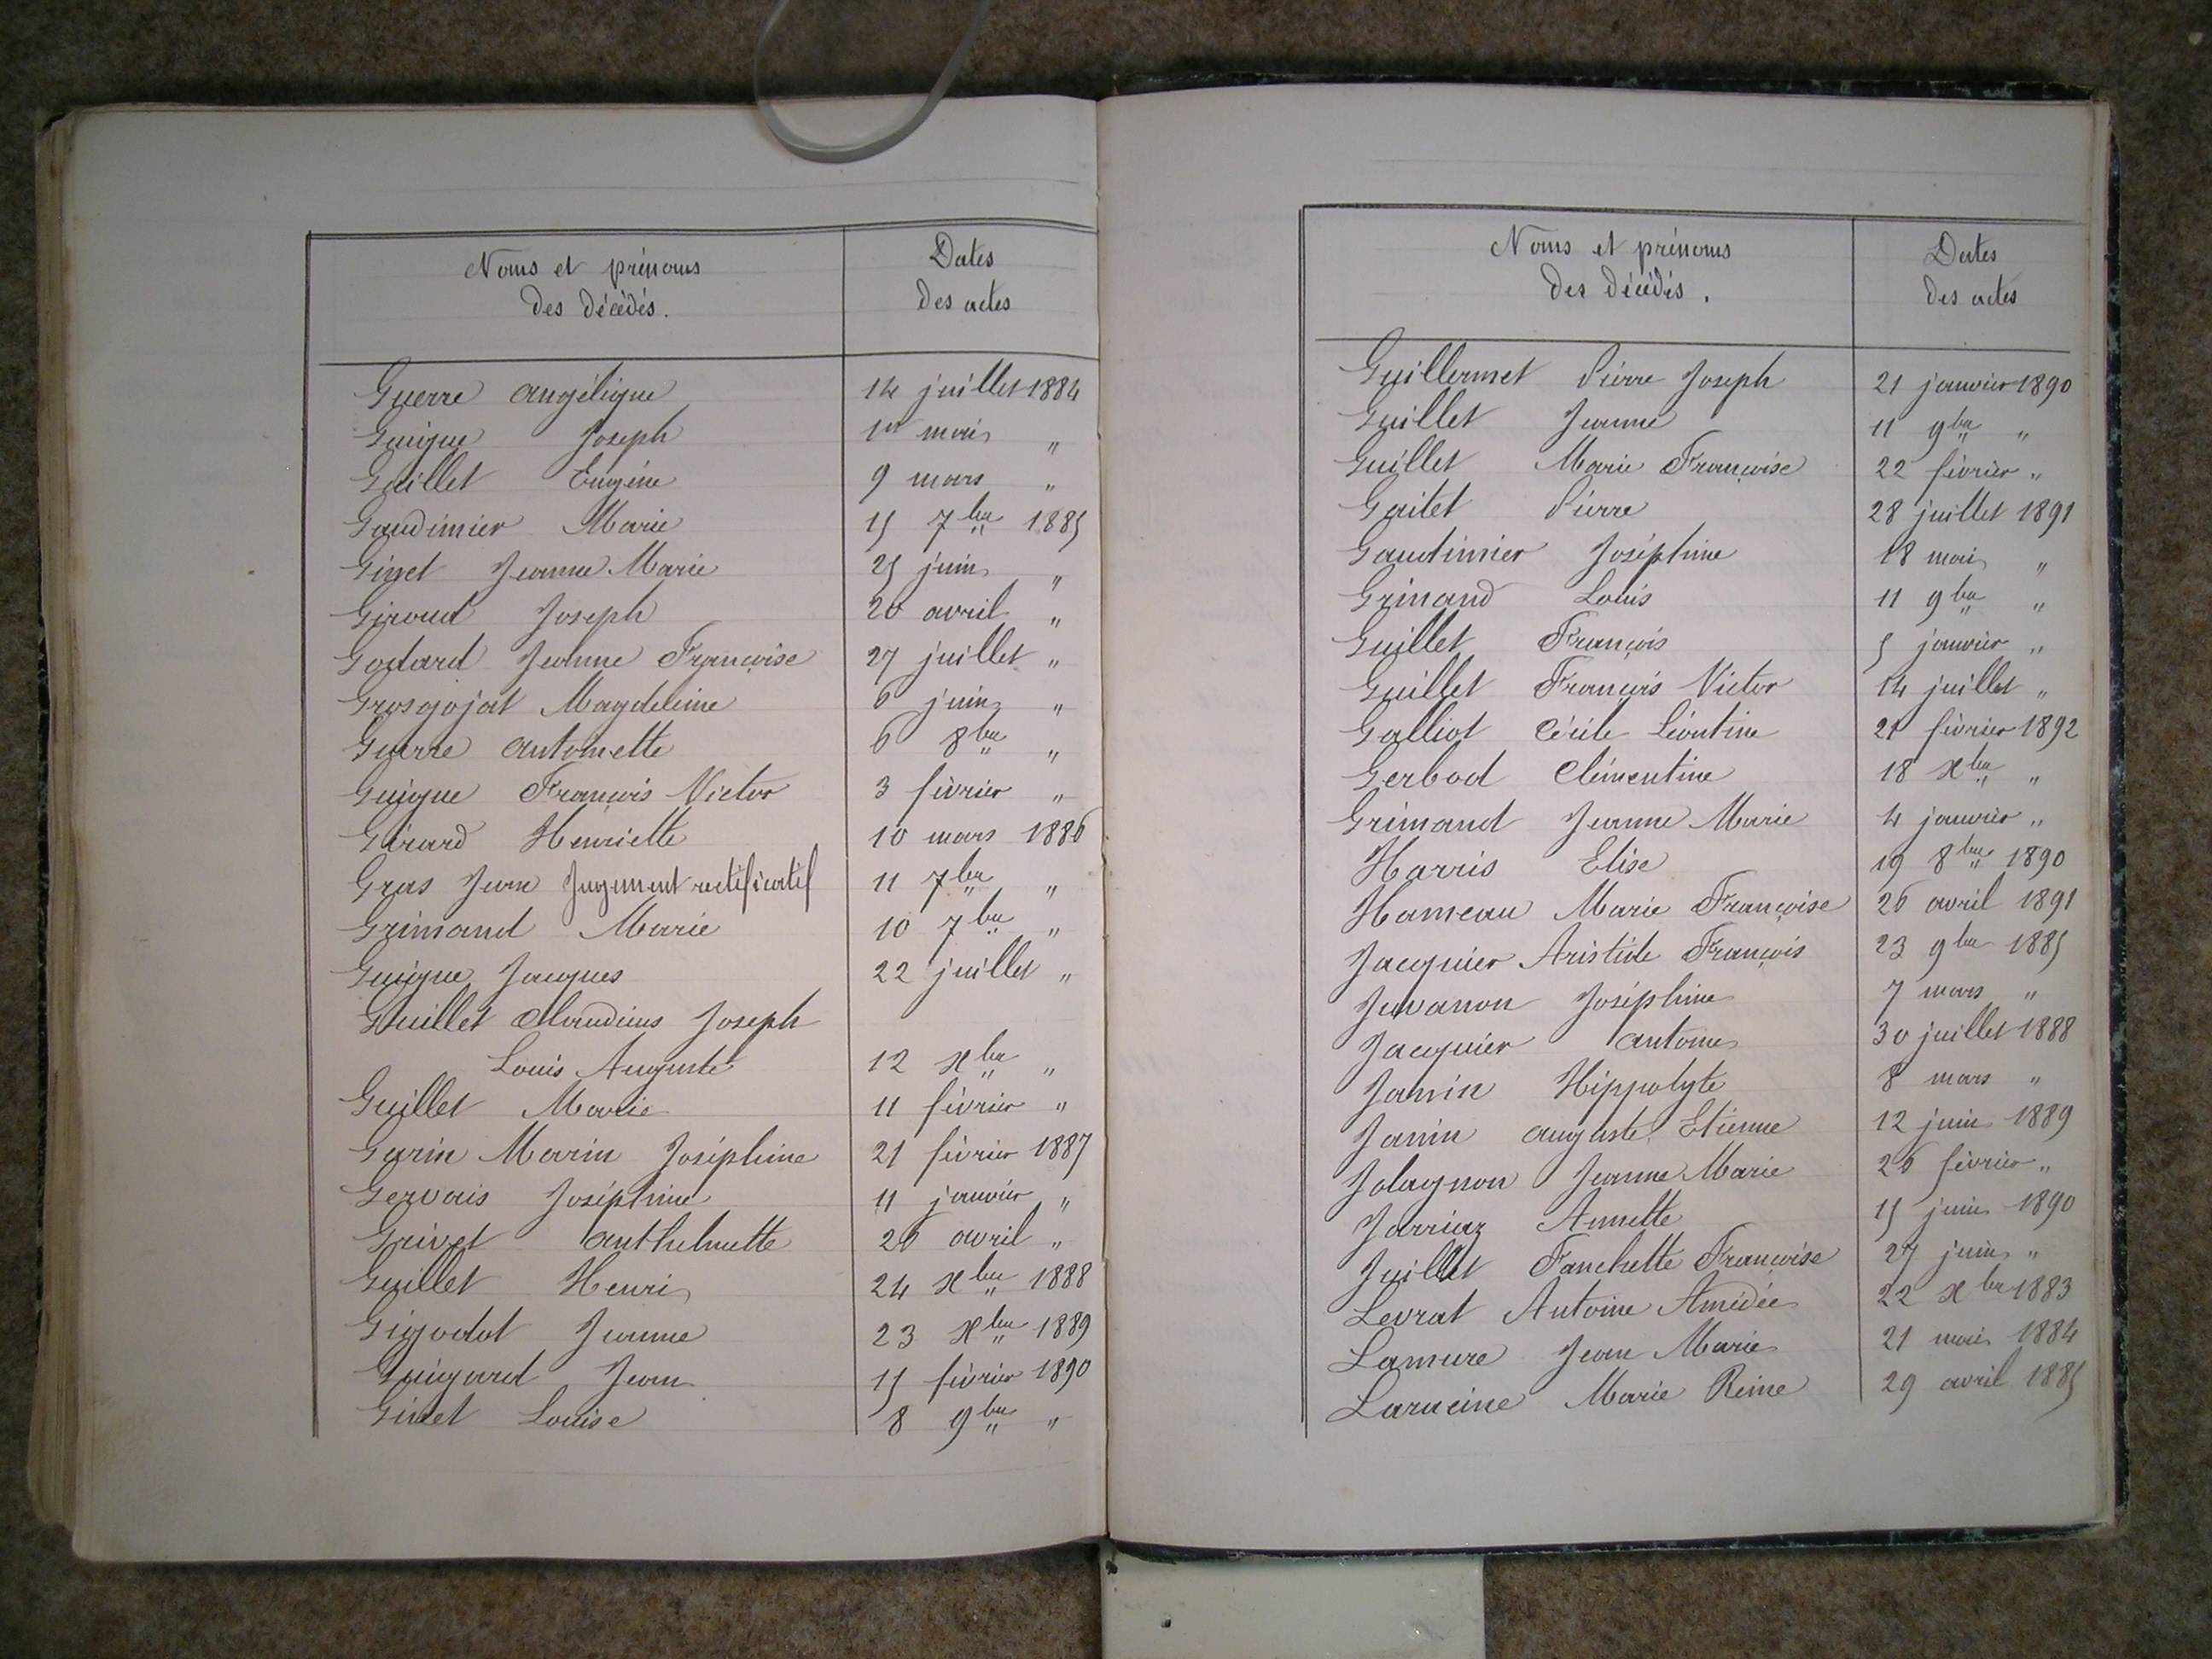 Noms et prénoms Dates
des décédés. des actes
Guerre Angélique 14 juillet 1884
Guigue Joseph 1er mai "
Guillet Eugène 9 mars "
Gaudimier Marie 15 7bre 1885
Ginet Jeanne Marie 25 juin "
Giroud Joseph 20 avril "
Godard Jeanne Françoise 27 juillet "
Grosgojat Magdeleine 6 juin "
Guerre Antoinette 6 8bre "
Guigue François Victor 3 février "
Girard Henriette 10 mars 1886
Gras Jean Jugement rectificatif 11 7bre "
Grimand Marie 10 7bre "
Guigue Jacques 22 juillet "
Guillet Claudius Joseph
Louis Auguste 12 xbre "
Guillet Marie 11 février "
Garin Marin Joséphine 21 février 1887
Gervais Joséphine 11 janvier "
Grivet Anthelmette 26 avril "
Guillet Henri 24 xbre 1888
Gigodot Jeanne 23 xbre 1889
Guigard Jean 15 février 1890
Ginet Louise 8 9bre "
Noms et prénoms Dates
des décédés. des actes
Guillermet Pierre Joseph 21 janvier 1890
Guillet Jeanne 11 9bre "
Guillet Marie Françoise 22 février "
Goitet Pierre 28 juillet 1891
Gaudimier Joséphine 18 mai "
Grimand Louis 11 9bre "
Guillet François 5 janvier "
Guillet François Victor 14 juillet "
Galliot Cécile Léontine 21 février 1892
Gerbod Clémentine 18 xbre "
Grimand Jeanne Marie 4 janvier "
Harris Elise 19 8bre 1890
Hameau Marie Françoise 26 avril 1891
Jacquier Aristide François 23 9bre 1885
Juvanon Joséphine 7 mars "
Jacquier Antoine 30 juillet 1888
Janin Hippolyte 8 mars "
Janin Auguste Etienne 12 juin 1889
Jolagnon Jeanne Marie 26 février "
Jarriaz Annette 15 juin 1890
Juillet Fanchette Françoise 27 juin "
Levrat Antoine Amédée 22 xbre 1883
Lamure Jean Marie 21 mai 1884
Laracine Marie Reine 29 avril 1885